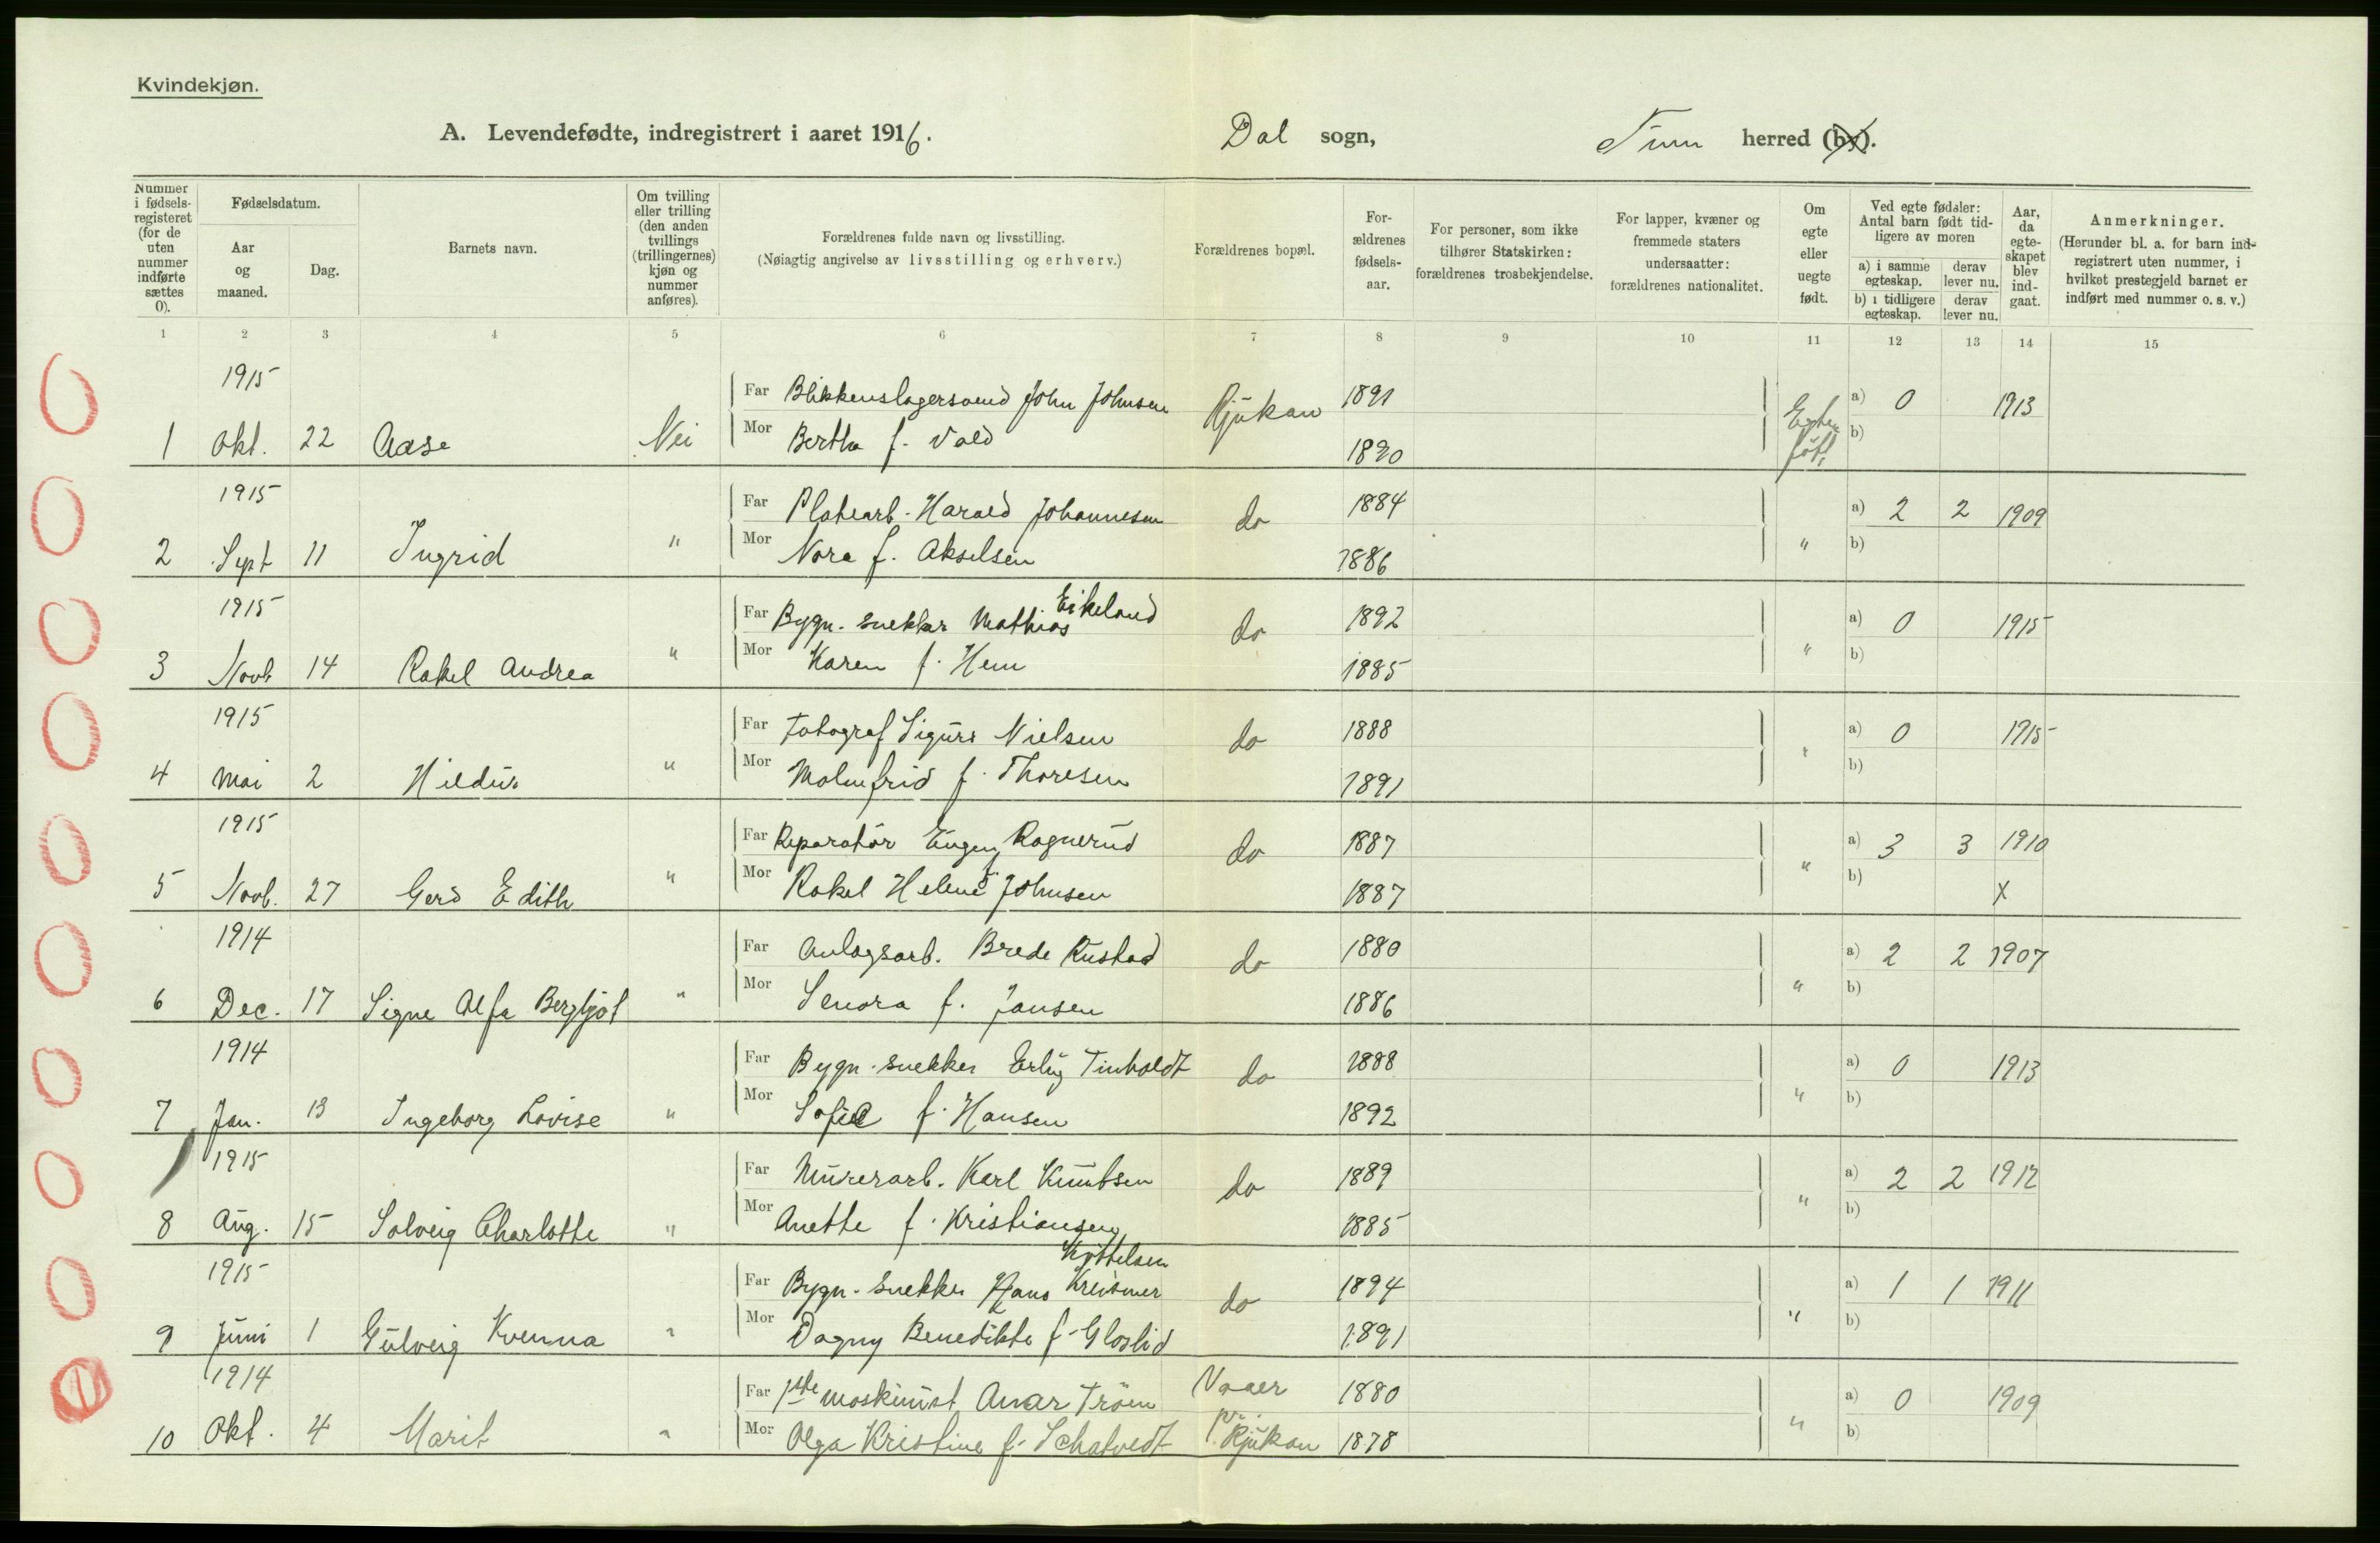 Kvindekjøn.
A. Levendefødte, indregistrert i aaret 1916. Dal sogn, Tinn herred (by).
Nummer i fødsels-registeret (for de uten nummer indførte sættes 0).
Fødselsdatum.
Aar og maaned.
Dag.
Barnets navn.
Om tvilling eller trilling (den anden tvillings (trillingernes) kjøn og nummer anføres).
Forældrenes fulde navn og livsstilling.
(Nøiagtig angivelse av livsstilling og erhverv.)
Forældrenes bopæl.
For-ældrenes fødsels-aar.
For personer, som ikke tilhører Statskirken: forældrenes trosbekjendelse.
For lapper, kvæner og fremmede staters undersaatter: forældrenes nationalitet.
Om egte eller uegte født.
Ved egte fødsler: Antal barn født tid-ligere av moren
a) i samme egteskap. derav lever nu.
b) i tidligere egteskap. derav lever nu.
Aar, da egte-skapet blev ind-gaat.
Anmerkninger.
(Herunder bl. a. for barn ind-registrert uten nummer, i hvilket prestegjeld barnet er indført med nummer o. s. v.)
1 2 3 4 5 6 7 8 9 10 11 12 13 14 15
1915 Far Blikkenslagersvend John Johnsen Rjukan 1891 a) 0 1913
1 Okt. 22 Aase Nei Mor Bertha f. Vold 1890 Egte født b)
1915 Far Platearb. Harald Johannesen do 1884 a) 2 2 1909
2 Sept 11 Ingrid " Mor Nora f. Akselsen 1886 " b)
1915 Far Bygn. snekker Mathias Eikeland do 1892 a) 0 1915
3 Novb 14 Rakel Andrea " Mor Karen f. Hem 1885 " b)
1915 Far Fotograf Sigurd Nielsen do 1888 a) 0 1915
4 Mai 2 Hildur " Mor Malmfrid f. Thoresen 1891 " b)
1915 Far Reparatør Eugen Ragnerud do 1887 a) 3 3 1910
5 Novb. 27 Gerd Edith " Mor Rakel Helene f. Johnsen 1887 " b) X
1914 Far Anlagsarb. Brede Rustad do 1880 a) 2 2 1907
6 Dec. 17 Signe Alfa Bergljot " Mor Senora f. Jansen 1886 " b)
1914 Far Bygn. snekker Erling Tinholdt do 1888 a) 0 1913
7 Jan. 13 Ingeborg Lovise " Mor Sofie f. Hansen 1892 " b)
1915 Far Murerarb. Karl Knutsen do 1889 a) 2 2 1912
8 Aug. 15 Solveig Charlotte " Mor Anette f. Kristiansen 1885 " b)
1915 Far Bygn. snekker Hans Kreismer Kittelsen do 1894 a) 1 1 1911
9 Juni 1 Gulveig Kvenna " Mor Dagny Benedikte f. Gloslid 1891 " b)
1914 Far 1ste maskinist Anar Trøen Vaaer 1880 a) 0 1909
10 Okt. 4 Marit " Mor Olga Kristine f. Schatvedt pr. Rjukan 1878 " b)